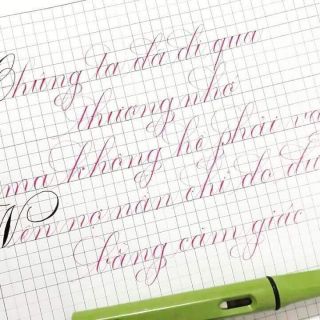 Chúng ta đã đi qua
thương nhớ
mà không hề phải
Nên nợ nần chỉ do
bằng cảm giác